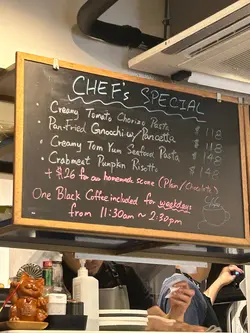 CHEF's SPECIAL
• Creamy Tomato Chorizo Pasta $ 118
• Pan-Fried Gnocchi w/ Pancetta $ 148
• Creamy Tom Yum Seafood Pasta $ 148
• Crabmeat Pumpkin Risotto $ 148
+ $26 for our homemade scone (Plain/Chocolate)
One Black Coffee included for weekdays
from 11:30am ~ 2:30pm
Coffee